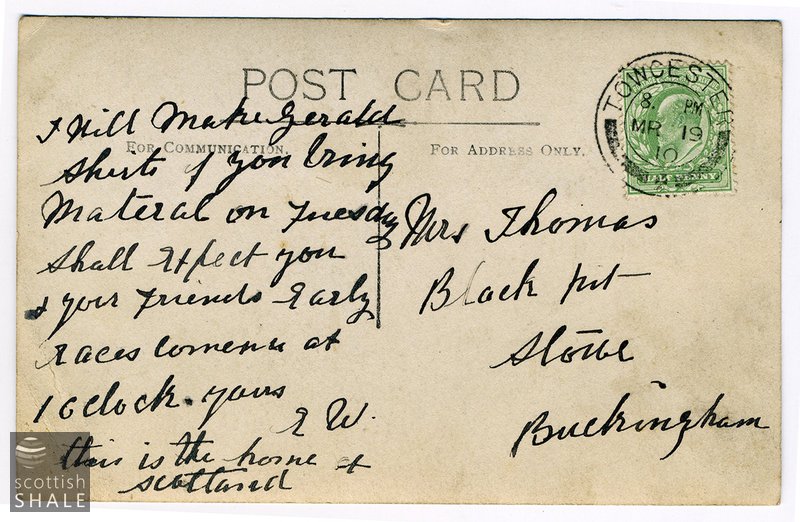 POST CARD
FOR COMMUNICATION.
FOR ADDRESS ONLY.
TOWCESTER
8. PM
MR 19
10
HALFPENNY
I Will Make Gerald
Shirts if you bring
Materal on Tuesday
Shall expect you
& your Friends Early
Races comence at
1 oclock. yours
E W.
this is the home
scotland
Mrs Thomas
Black pit
Stowe
Buckingham
scottish
SHALE